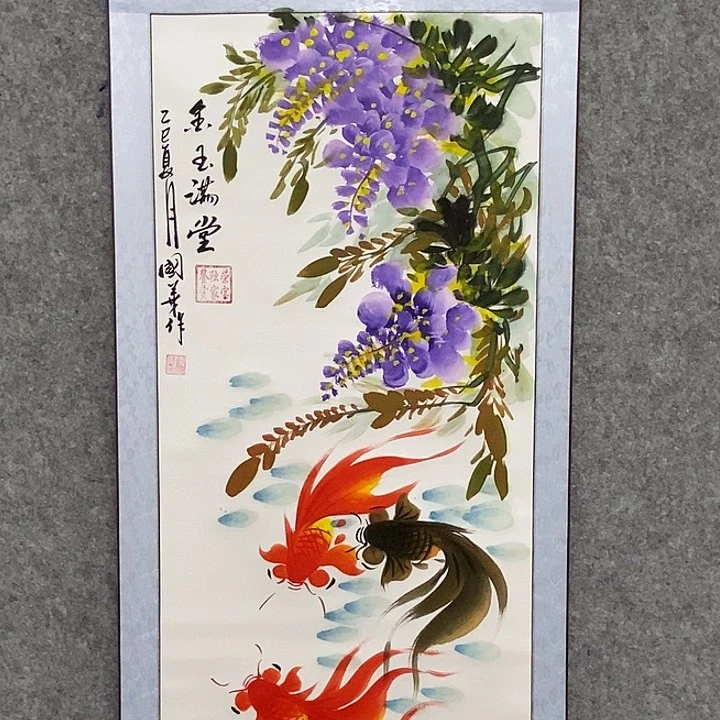 金玉满堂
乙巳夏月國華作